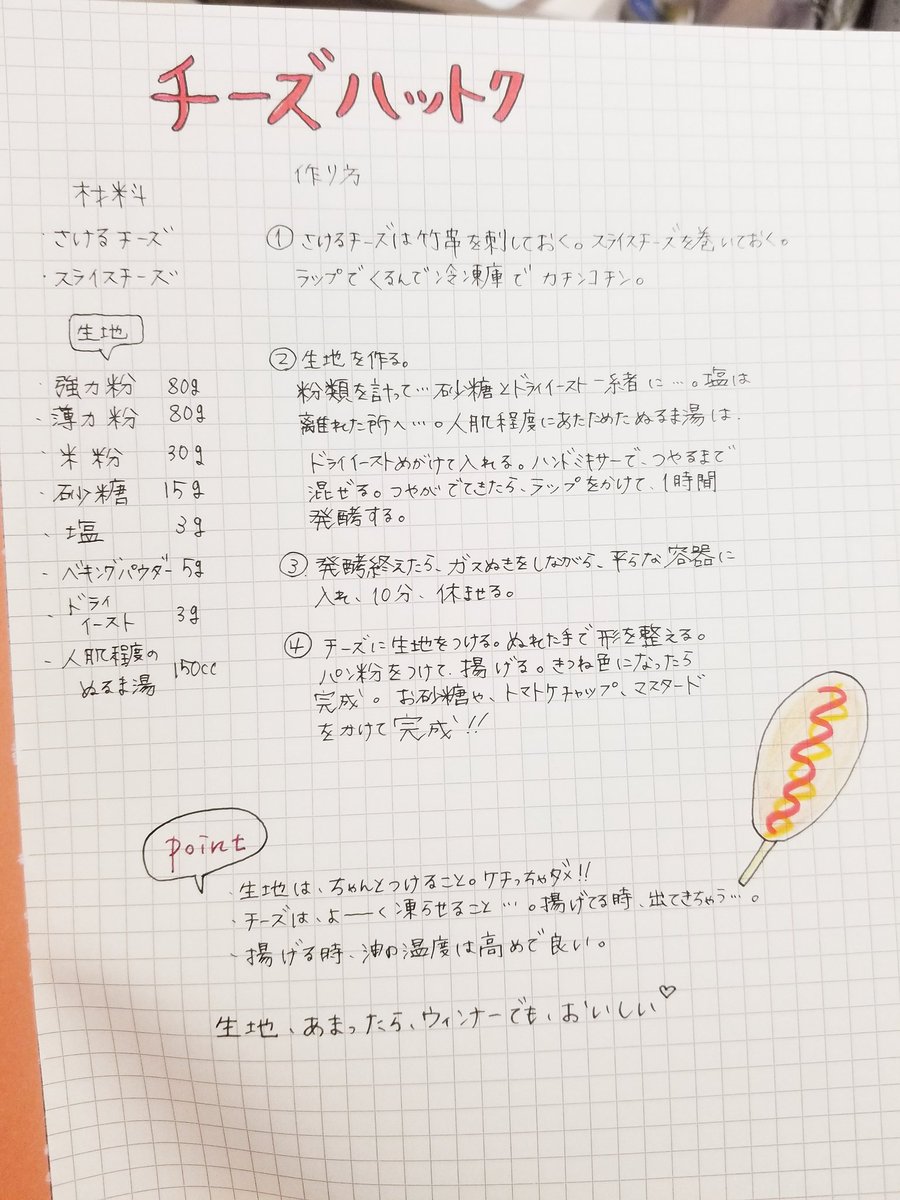 チーズハットク
材料
・さけるチーズ
・スライスチーズ
生地
・強力粉 80g
・薄力粉 80g
・米粉 30g
・砂糖 15g
・塩 3g
・ベキングパウダー 5g
・ドライイースト 3g
・人肌程度の
ぬるま湯 150cc
作り方
① さけるチーズは竹串を刺しておく。スライスチーズを巻いておく。
ラップでくるんで冷凍庫でカチンコチン。
② 生地を作る。
粉類を計って…砂糖とドライイースト一緒に…。塩は
離れた所へ…。人肌程度にあたためたぬるま湯は、
ドライイーストめがけて入れる。ハンドミキサーで、つやるまで
混ぜる。つやがでてきたら、ラップをかけて、1時間
発酵する。
③ 発酵終えたら、ガスぬきをしながら、平らな容器に
入れ、10分、休ませる。
④ チーズに生地をつける。ぬれた手で形を整える。
パン粉をつけて、揚げる。きつね色になったら
完成。お砂糖や、トマトケチャップ、マスタード
をかけて完成!!
point
・生地は、ちゃんとつけること。ケチっちゃダメ!!
・チーズは、よーーく凍らせること…。揚げてる時、出てきちゃう…。
・揚げる時、油の温度は高めで良い。
生地、あまったら、ウィンナーでも、おいしい♡